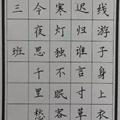 线游子身上衣
迟归谁言寸草
寒灯独不眠客
今夜思千里愁
三班